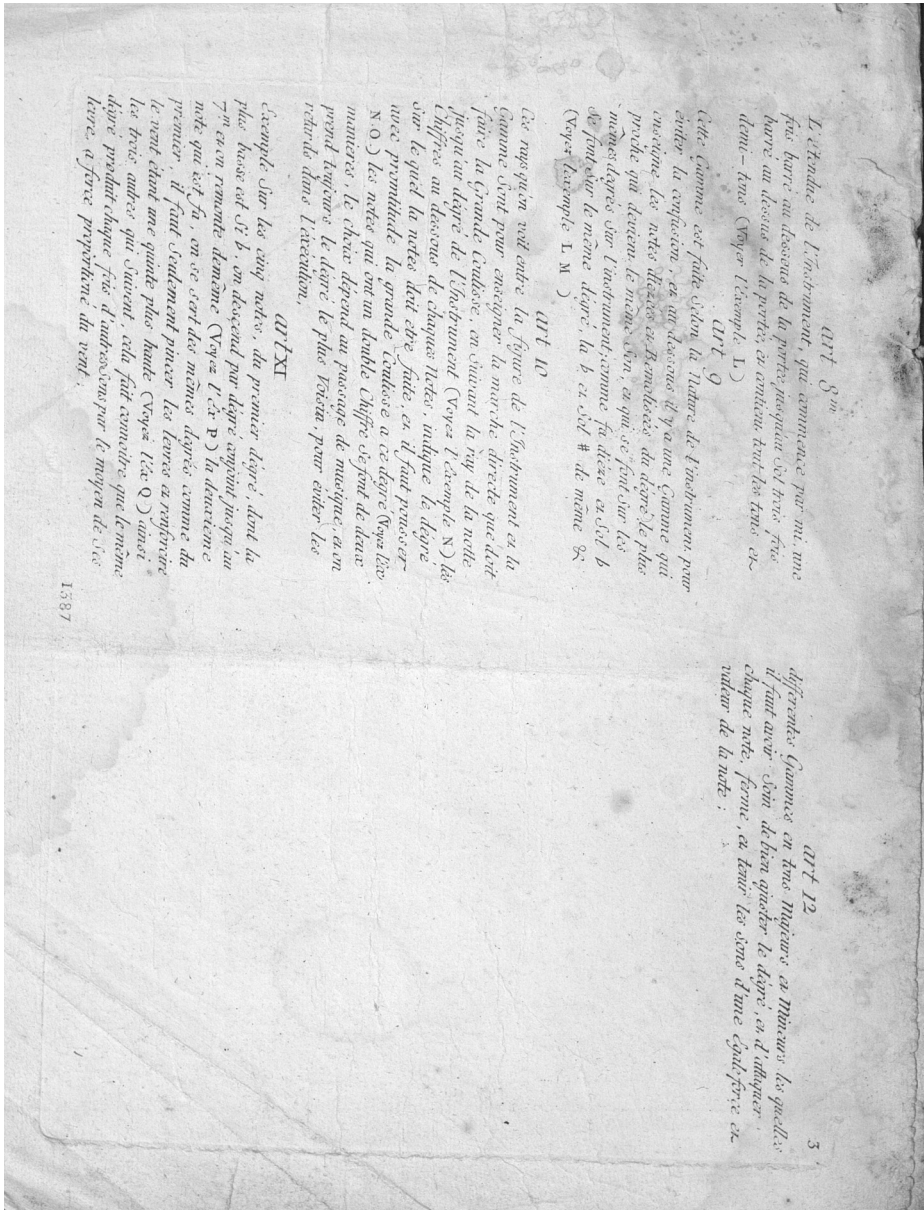 3
art 8.m
L'étendue de l'Instrument, qui commence par mi, une
fois barré au dessous de la portée, jusqu'au Sol trois fois
barré au dessus de la portée, et contient tout les tons et
demi-tons (Voyez l'éxemple L)
art 9
Cette Gamme est faite Selon la Nature de L'instrument, pour
eviter la confusion, et au dessous il y a une Gamme qui
enseigne les notes diezées et Bemolisées du dégré le plus
proche qui devient le meme Son, et qui se font Sur les
mêmes dégrés Sur l'instrument; comme fa dieze et Sol b
Se font Sur le même dégré, la b et Sol # de même &.
(Voyez l'exemple L M)
art 10
Les rays qu'on voit entre la figure de l'Instrument et la
Gamme Sont pour enseigner la marche directe que doit
faire la Grande Coulisse, en Suivant la ray de la notte
jusqu'au dégré de l'Instrument (Voyez l'éxemple N) les
Chiffres au dessous de chaques Notes, indique le dégré
Sur le quel la notes doit etre faite, et il faut pousser
avec promtitude la grande Coulisse a ce dégré (Voyez l'éx
N.O) les notes qui ont un double Chiffre Se font de deux
manieres, le choix dépend au passage de musique, et on
prend toujours le dégré le plus Voisin, pour eviter les
retards dans l'éxécution,
art XI
Exemple Sur les cinq notes, du premier dégré, dont la
plus basse est Si b, on descend par dégré conjoint jusqu'au
7.m et on remonte demême (Voyez l'éx P) la deuxieme
note qui est fa, on se sert des mêmes dégrés comme du
premier, il faut Seulement pincer les levres et renforcire
le vent étant une quinte plus haute (Voyez l'éx Q) ainsi
les trois autres qui Suivent, cela fait connoitre que le même
dégré produit chaque fois d'autres Sons par le moyen de Ses
levre, a force proportioné du vent;
1587
art 12
differentes Gammes en tons Majeurs et Mineurs les quelles
il faut avoir Soin de bien ajuster le dégré, et d'attaquer
chaque note, ferme, et tenir les Sons d'une Égale force et
valeur de la note;